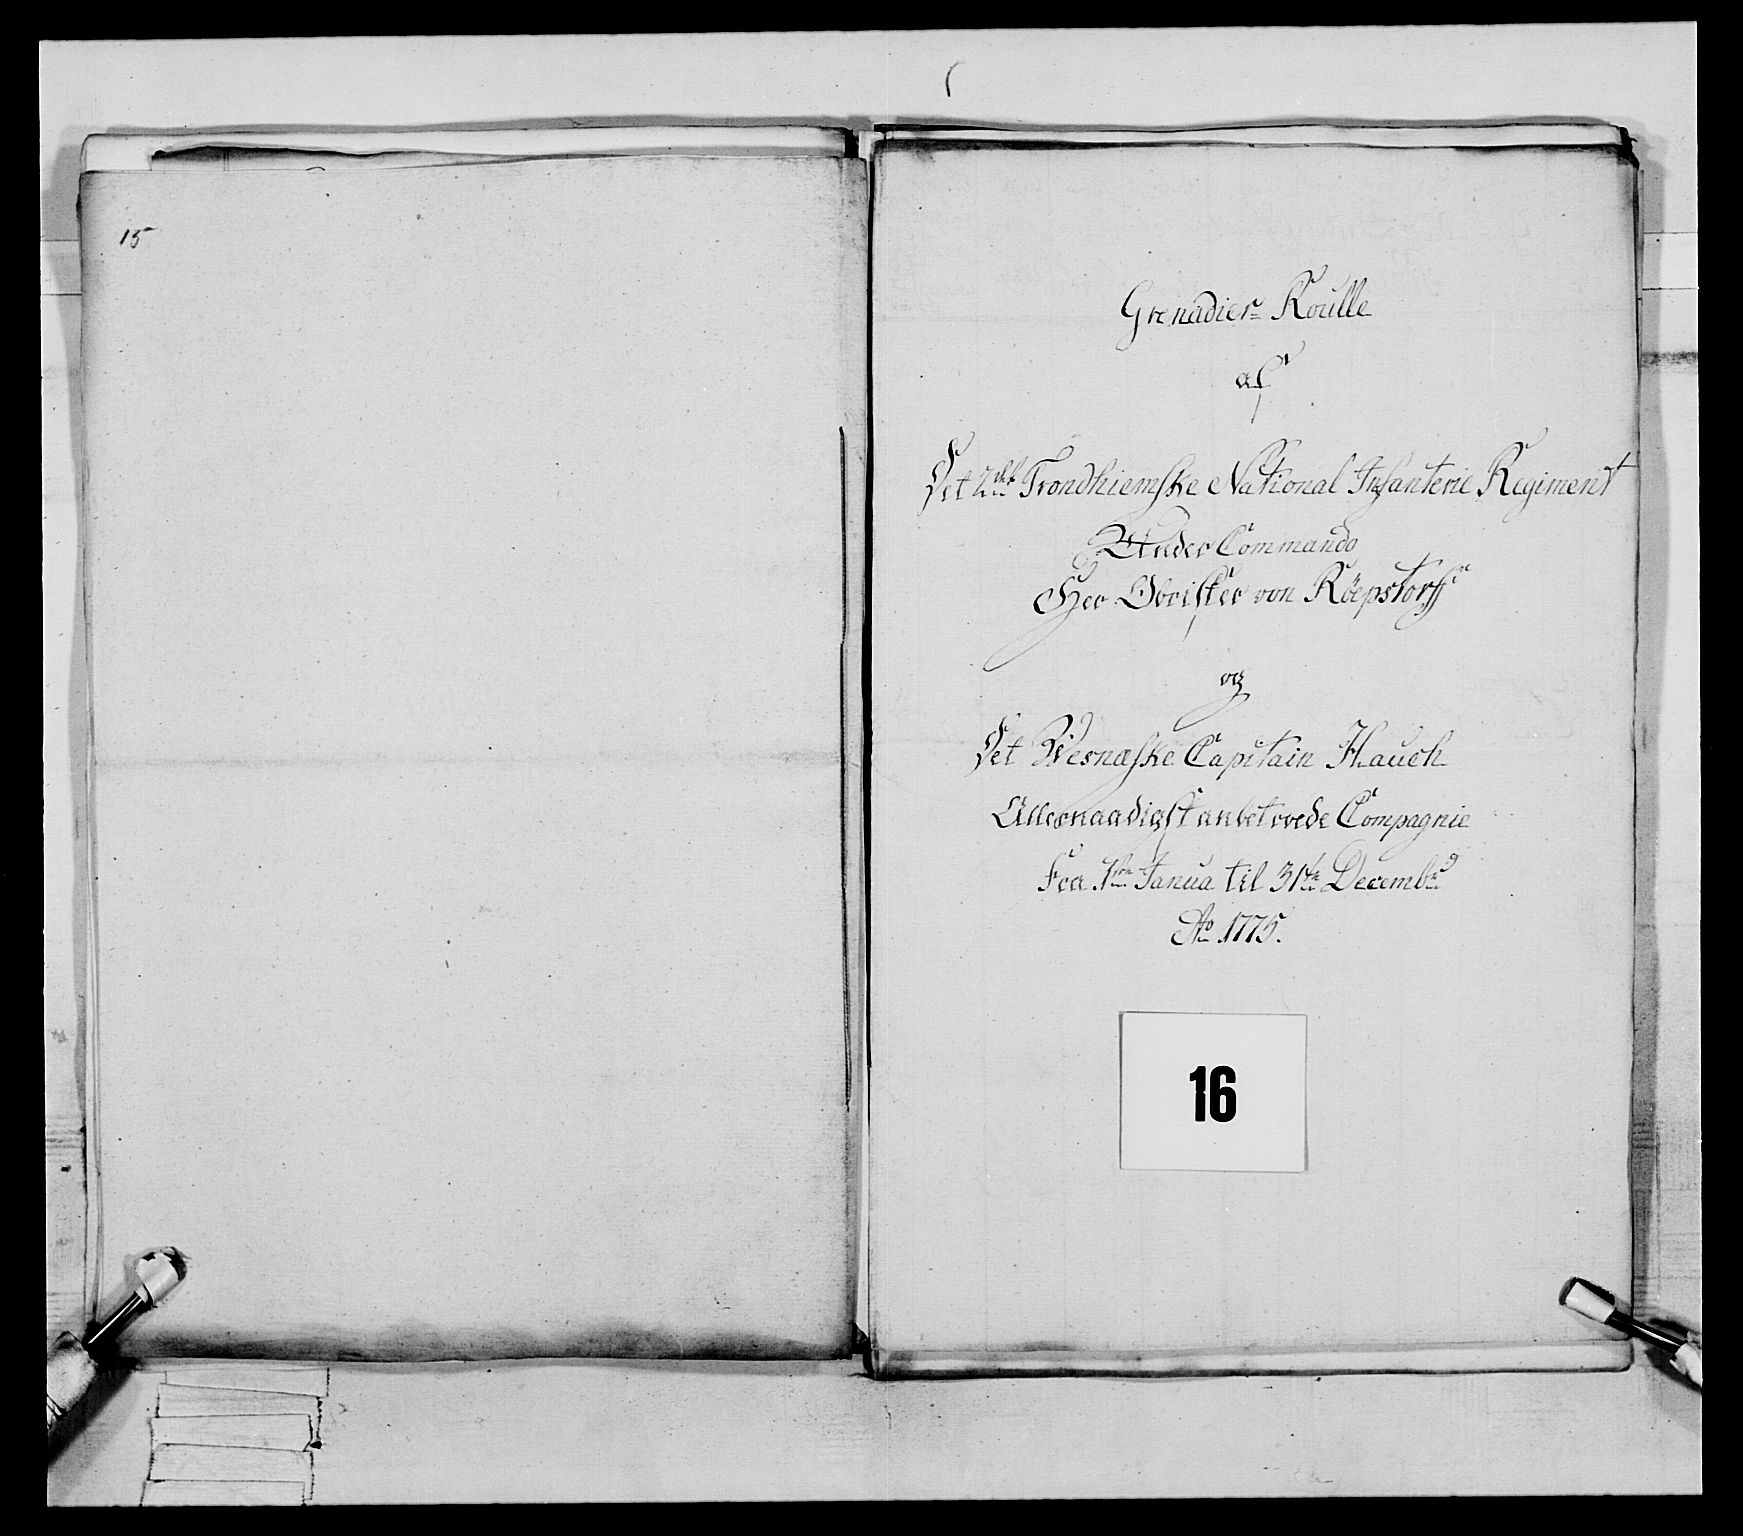 15
Grenadier Roulle
af
Det 2det Trondhiemske National Infanterie Regiment
Under Commando
Her Obrister von Röepstorff
og
Det Wesnæske Capitain Hauch
Allernaadigst anbetroede Compagnie
Fra 1ste Janua til 31te Decembr
Ao 1775.
16